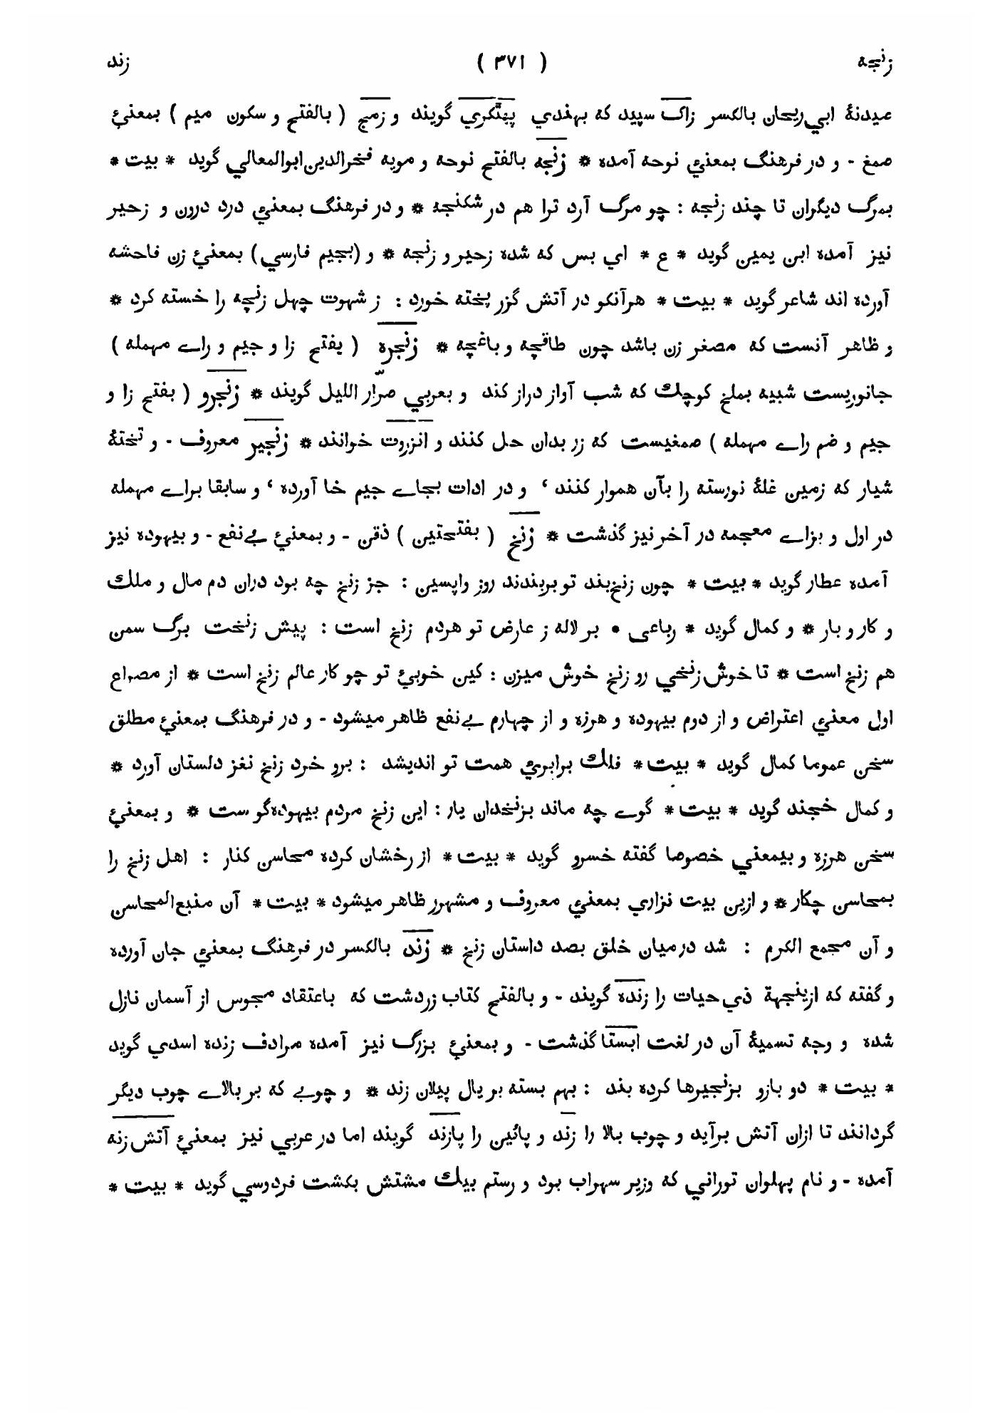 زنجه ( ۳۷۱ ) زند
صیدنهٔ ابي ریحان بالکسر زاک سپید که بهندي پهٹکري گویند و زمج ( بالفتح و سکون میم ) بمعنئ
صمغ - و در فرهنگ بمعنئ نوحه آمده * زنجه بالفتح نوحه و مویه فخرالدین ابوالمعالي گوید * بیت *
بمرگ دیگران تا چند زنجه : چو مرگ آرد ترا هم در شکنجه * و در فرهنگ بمعنئ درد درون و زحیر
نیز آمده ابن یمین گوید * ع * اي بس که شده زحیر و زنجه * و (بجیم فارسي) بمعنئ زن فاحشه
آورده اند شاعر گوید * بیت * هرآنکو در آتش گزر پخته خورد : ز شهوت چهل زنچه را خسته کرد *
و ظاهر آنست که مصغر زن باشد چون طاقچه و باغچه * زنجره ( بفتح زا و جیم و راے مهمله )
جانوریست شبیه بملخ کوچك که شب آواز دراز کند و بعربي صرّار اللیل گویند * زنجرو ( بفتح زا و
جیم و ضم راے مهمله ) صمغیست که زر بدان حل کنند و انزروت خوانند * زنجیر معروف - و تختهٔ
شیار که زمین غلهٔ نورسته را بآن هموار کنند ، و در ادات بجاے جیم خا آورده ، و سابقا براے مهمله
در اول و بزاے معجمه در آخر نیز گذشت * زنخ ( بفتحتین ) ذقن - و بمعنئ بےنفع - و بیهوده نیز
آمده عطار گوید * بیت * چون زنخ‌بند تو بربندند روز واپسین : جز زنخ چه بود دران دم مال و ملك
و کار و بار * و کمال گوید * رباعی * بر لاله ز عارض تو هردم زنخ است : پیش زنخت برگ سمن
هم زنخ است * تا خوش زنخي رو زنخ خوش میزن : کین خوبئ تو چو کار عالم زنخ است * از مصراع
اول معنئ اعتراض و از دوم بیهوده و هرزه و از چهارم بےنفع ظاهر میشود - و در فرهنگ بمعنئ مطلق
سخن عموما کمال گوید * بیت * فلك برابرئ همت تو اندیشد : برو خرد زنخ نغز دلستان آورد *
و کمال خجند گوید * بیت * گوے چه ماند بزنخدان یار : این زنخ مردم بیهوده‌گو ست * و بمعنئ
سخن هرزه و بیمعني خصوصا گفته خسرو گوید * بیت * از رخشان کرده محاسن کنار : اهل زنخ را
بمحاسن چکار * و ازین بیت نزاري بمعنئ معروف و مشهور ظاهر میشود * بیت * آن منبع المحاسن
و آن مجمع الکرم : شد درمیان خلق بصد داستان زنخ * زند بالکسر در فرهنگ بمعنئ جان آورده
و گفته که ازینجهة ذي حیات را زنده گویند - و بالفتح کتاب زردشت که باعتقاد مجوس از آسمان نازل
شده و وجه تسمیهٔ آن در لغت ابستا گذشت - و بمعنئ بزرگ نیز آمده مرادف زنده اسدي گوید
* بیت * دو بازو بزنجیرها کرده بند : بهم بسته بر یال پیلان زند * و چوبے که بر بالاے چوب دیگر
گردانند تا ازان آتش برآید و چوب بالا را زند و پائین را پازند گویند اما در عربي نیز بمعنئ آتش زنه
آمده - و نام پهلوان توراني که وزیر سهراب بود و رستم بیك مشتش بکشت فردوسي گوید * بیت *